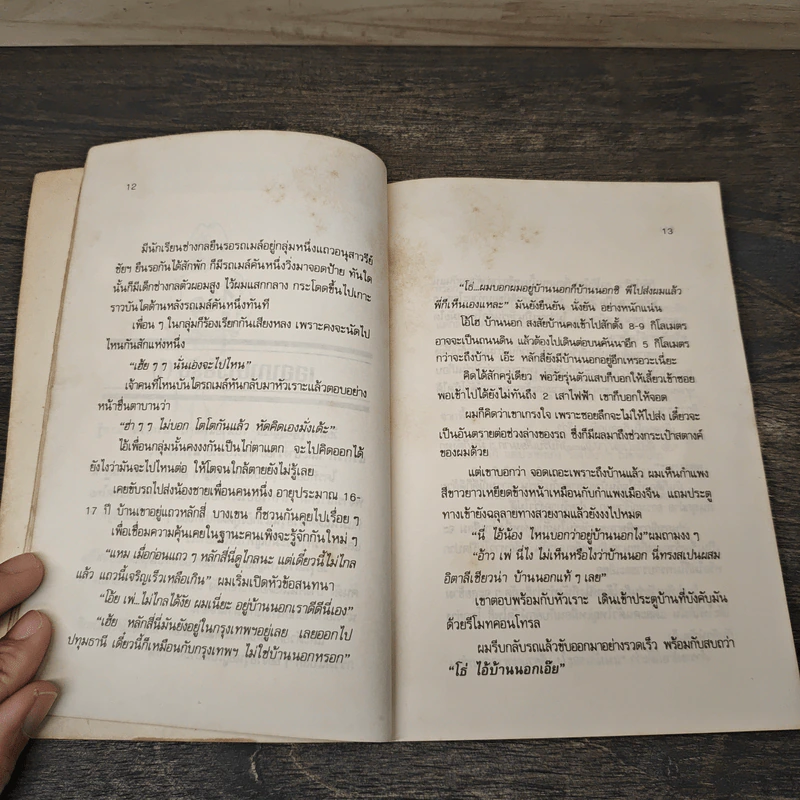 12
มีนักเรียนช่างกลยืนรอรถเมล์อยู่กลุ่มหนึ่งแถวอนุสาวรีย์
ชัยฯ ยืนรอกันได้สักพัก ก็มีรถเมล์คันหนึ่งวิ่งมาจอดป้าย ทันใด
นั้นก็มีเด็กช่างกลตัวผอมสูง ไว้ผมแสกกลาง กระโดดขึ้นไปเกาะ
ราวบันไดด้านหลังรถเมล์คันหนึ่งทันที
เพื่อน ๆ ในกลุ่มก็ร้องเรียกกันเสียงหลง เพราะคงจะนัดไป
ไหนกันสักแห่งหนึ่ง
“เฮ้ย ๆ ๆ นั่นเองจะไปไหน”
เจ้าคนที่โหนบันไดรถเมล์หันกลับมาหัวเราะแล้วตอบอย่าง
หน้าชื่นตาบานว่า
“ฮ่า ๆ ๆ ไม่บอก โตโตกันแล้ว หัดคิดเองมั่งเด้ะ”
ไอ้เพื่อนกลุ่มนั้นคงงงกันเป็นไก่ตาแตก จะไปคิดออกได้
ยังไงว่ามันจะไปไหนต่อ ให้โตจนใกล้ตายยังไม่รู้เลย
เคยขับรถไปส่งน้องชายเพื่อนคนหนึ่ง อายุประมาณ 16-
17 ปี บ้านเขาอยู่แถวหลักสี่ บางเขน ก็ชวนกันคุยไปเรื่อย ๆ
เพื่อเชื่อมความคุ้นเคยในฐานะคนเพิ่งจะรู้จักกันใหม่ ๆ
“แหม เมื่อก่อนแถว ๆ หลักสี่นี่ดูไกลนะ แต่เดี๋ยวนี้ไม่ไกล
แล้ว แถวนี้เจริญเร็วเหลือเกิน” ผมเริ่มเปิดหัวข้อสนทนา
“โอ๊ย เพ่...ไม่ไกลได้งัย ผมเนี่ยะ อยู่บ้านนอกเราดีดีนี่เอง”
“เฮ้ย หลักสี่นี่มันยังอยู่ในกรุงเทพฯอยู่เลย เลยออกไป
ปทุมธานี เดี๋ยวนี้ก็เหมือนกับกรุงเทพฯ ไม่ใช่บ้านนอกหรอก”
13
“โธ่...ผมบอกผมอยู่บ้านนอกก็บ้านนอกซิ พี่ไปส่งผมแล้ว
พี่ก็เห็นเองแหละ” มันยังยืนยัน นั่งยัน อย่างหนักแน่น
โอ้โฮ บ้านนอก สงสัยบ้านคงเข้าไปสักตั้ง 8-9 กิโลเมตร
อาจจะเป็นถนนดิน แล้วต้องไปเดินต่อบนคันนาอีก 5 กิโลเมตร
กว่าจะถึงบ้าน เอ๊ะ หลักสี่ยังมีบ้านนอกอยู่อีกเหรอวะเนี่ยะ
คิดได้สักครู่เดียว พ่อวัยรุ่นตัวแสบก็บอกให้เลี้ยวเข้าซอย
พอเข้าไปได้ยังไม่ทันถึง 2 เสาไฟฟ้า เขาก็บอกให้จอด
ผมก็คิดว่าเขาเกรงใจ เพราะซอยลึกจะไม่ให้ไปส่ง เดี๋ยวจะ
เป็นอันตรายต่อช่วงล่างของรถ ซึ่งก็มีผลมาถึงช่วงกระเป๋าสตางค์
ของผมด้วย
แต่เขาบอกว่า จอดเถอะเพราะถึงบ้านแล้ว ผมเห็นกำแพง
สีขาวยาวเหยียดข้างหน้าเหมือนกับกำแพงเมืองจีน แถมประตู
ทางเข้ายังฉลุลายทางสวยงามแล้วยังงงไปหมด
“นี่ ไอ้น้อง ไหนบอกว่าอยู่บ้านนอกไง”ผมถามงง ๆ
“อ้าว เพ่ นี่ไง ไม่เห็นหรือไงว่าบ้านนอก นี่ทรงสเปนผสม
อิตาลีเชียวน่า บ้านนอกแท้ ๆ เลย”
เขาตอบพร้อมกับหัวเราะ เดินเข้าประตูบ้านที่บังคับมัน
ด้วยรีโมทคอนโทรล
ผมรีบกลับรถแล้วขับออกมาอย่างรวดเร็ว พร้อมกับสบถว่า
“โธ่ ไอ้บ้านนอกเอ๊ย”